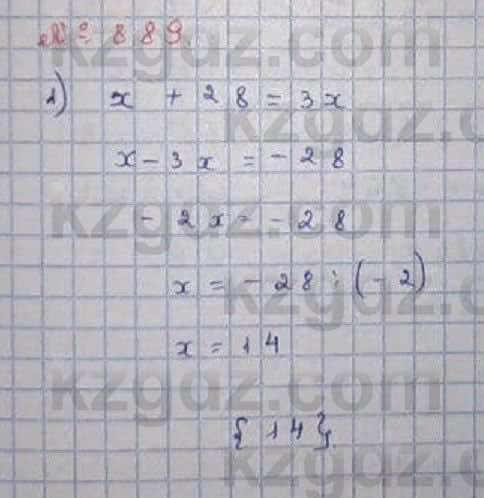 № 889.
1) x + 28 = 3x
x - 3x = -28
-2x = -28
x = -28 : (-2)
x = 14
{14}.
kzgdz.com